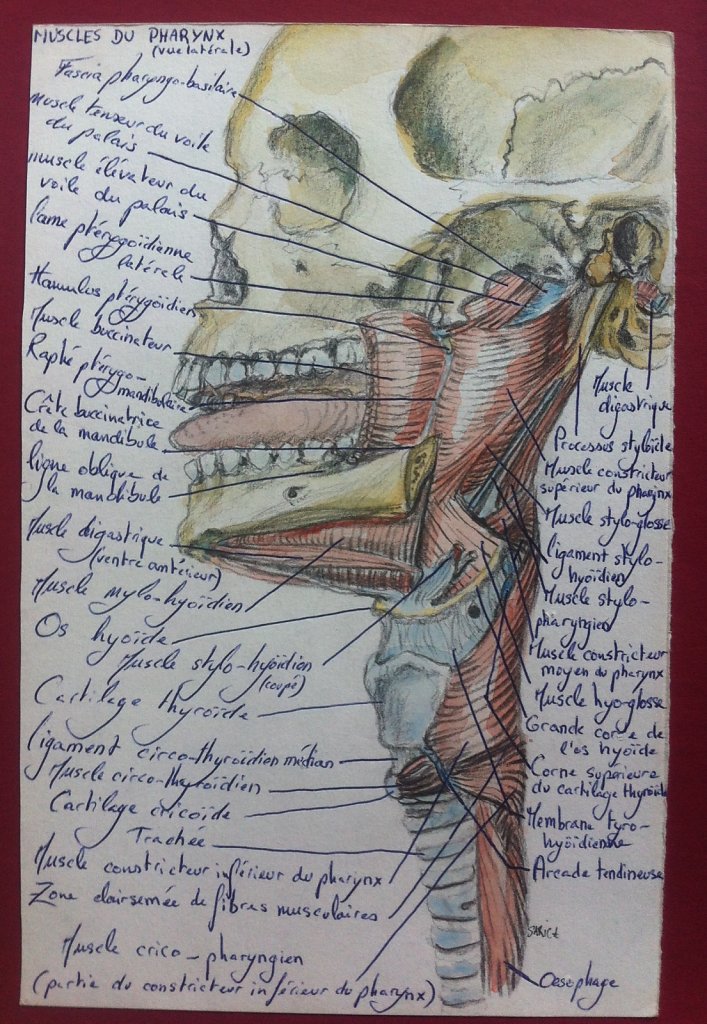 MUSCLES DU PHARYNX
(vue latérale)
Fascia pharyngo-basilaire
muscle tenseur du voile
du palais
muscle élévateur du
voile du palais
lame ptérygoïdienne
latérale
Hamulus ptérygoïdien
Muscle buccinateur
Raphé ptérygo-
mandibulaire
Crête buccinatrice
de la mandibule
ligne oblique de
la mandibule
Muscle digastrique
(ventre antérieur)
Muscle mylo-hyoïdien
Os hyoïde
Muscle stylo-hyoïdien
(coupé)
Cartilage thyroïde
ligament circo-thyroïdien médian
Muscle circo-thyroïdien
Cartilage cricoïde
Trachée
Muscle constricteur inférieur du pharynx
Zone clairsemée de fibres musculaires
Muscle crico-pharyngien
(partie du constricteur inférieur du pharynx)
Muscle
digastrique
Processus styloïde
Muscle constricteur
supérieur du pharynx
Muscle stylo-glosse
ligament stylo-
hyoïdien
Muscle stylo-
pharyngien
Muscle constricteur
moyen du pharynx
Muscle hyo-glosse
Grande corne de
l'os hyoïde
Corne supérieure
du cartilage thyroïde
Membrane tyro-
hyoïdienne
Arcade tendineuse
Oesophage